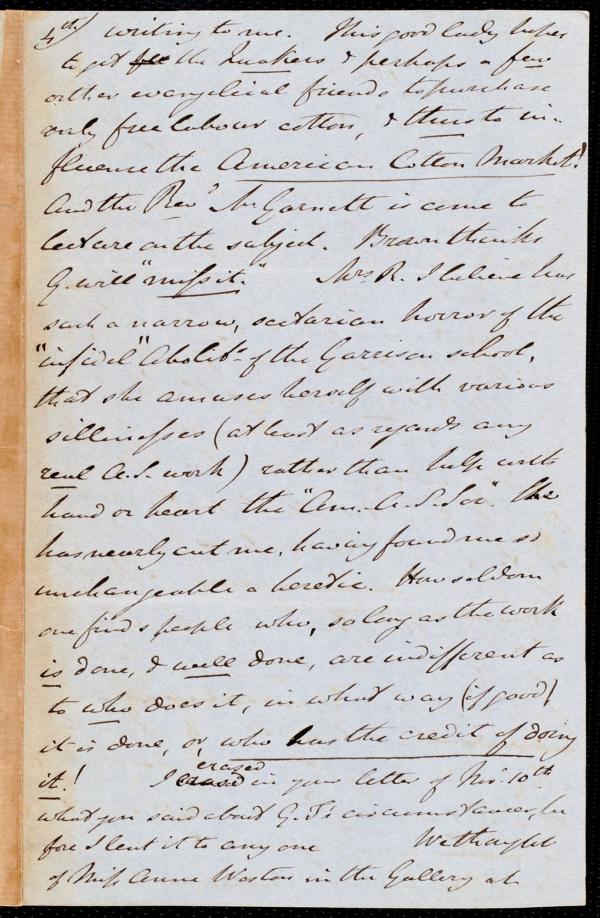 4th) writing to me. This good lady hopes
to get the Quakers & perhaps a few
other evangelical friends to purchase
only free labour cotton, & thus to in-
fluence the American Cotton Market!
And the Revd. Mr Garnett is come to
lecture on the subject. Brown thinks
G. will "miss it." Mrs R. I believe has
such a narrow, sectarian horror of the
"infidel" Abolits- of the Garrison school,
that she amuses herself with various
sillinesses (at least as regards any
real A.S. work) rather than help with
hand or heart the "Am. A. S. Soc". She
has nearly cut me, having found me so
unchangeable a heretic. How seldom
one finds people who, so long as the work
is done, & well done, are indifferent as
to who does it, in what way (if good)
it is done, or, who has the credit of doing
it! I erased in your letter of Novr. 10th
what you said about G. T's circumstances, be
fore I lent it to any one We thought
of Miss Anne Weston in the Gallery at